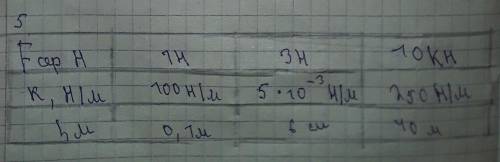 5
Fупр Н 1Н 3Н 10КН
К, Н/М 100Н/М 5·10⁻³Н/М 250Н/М
h м 0,1м 6 см 40 м